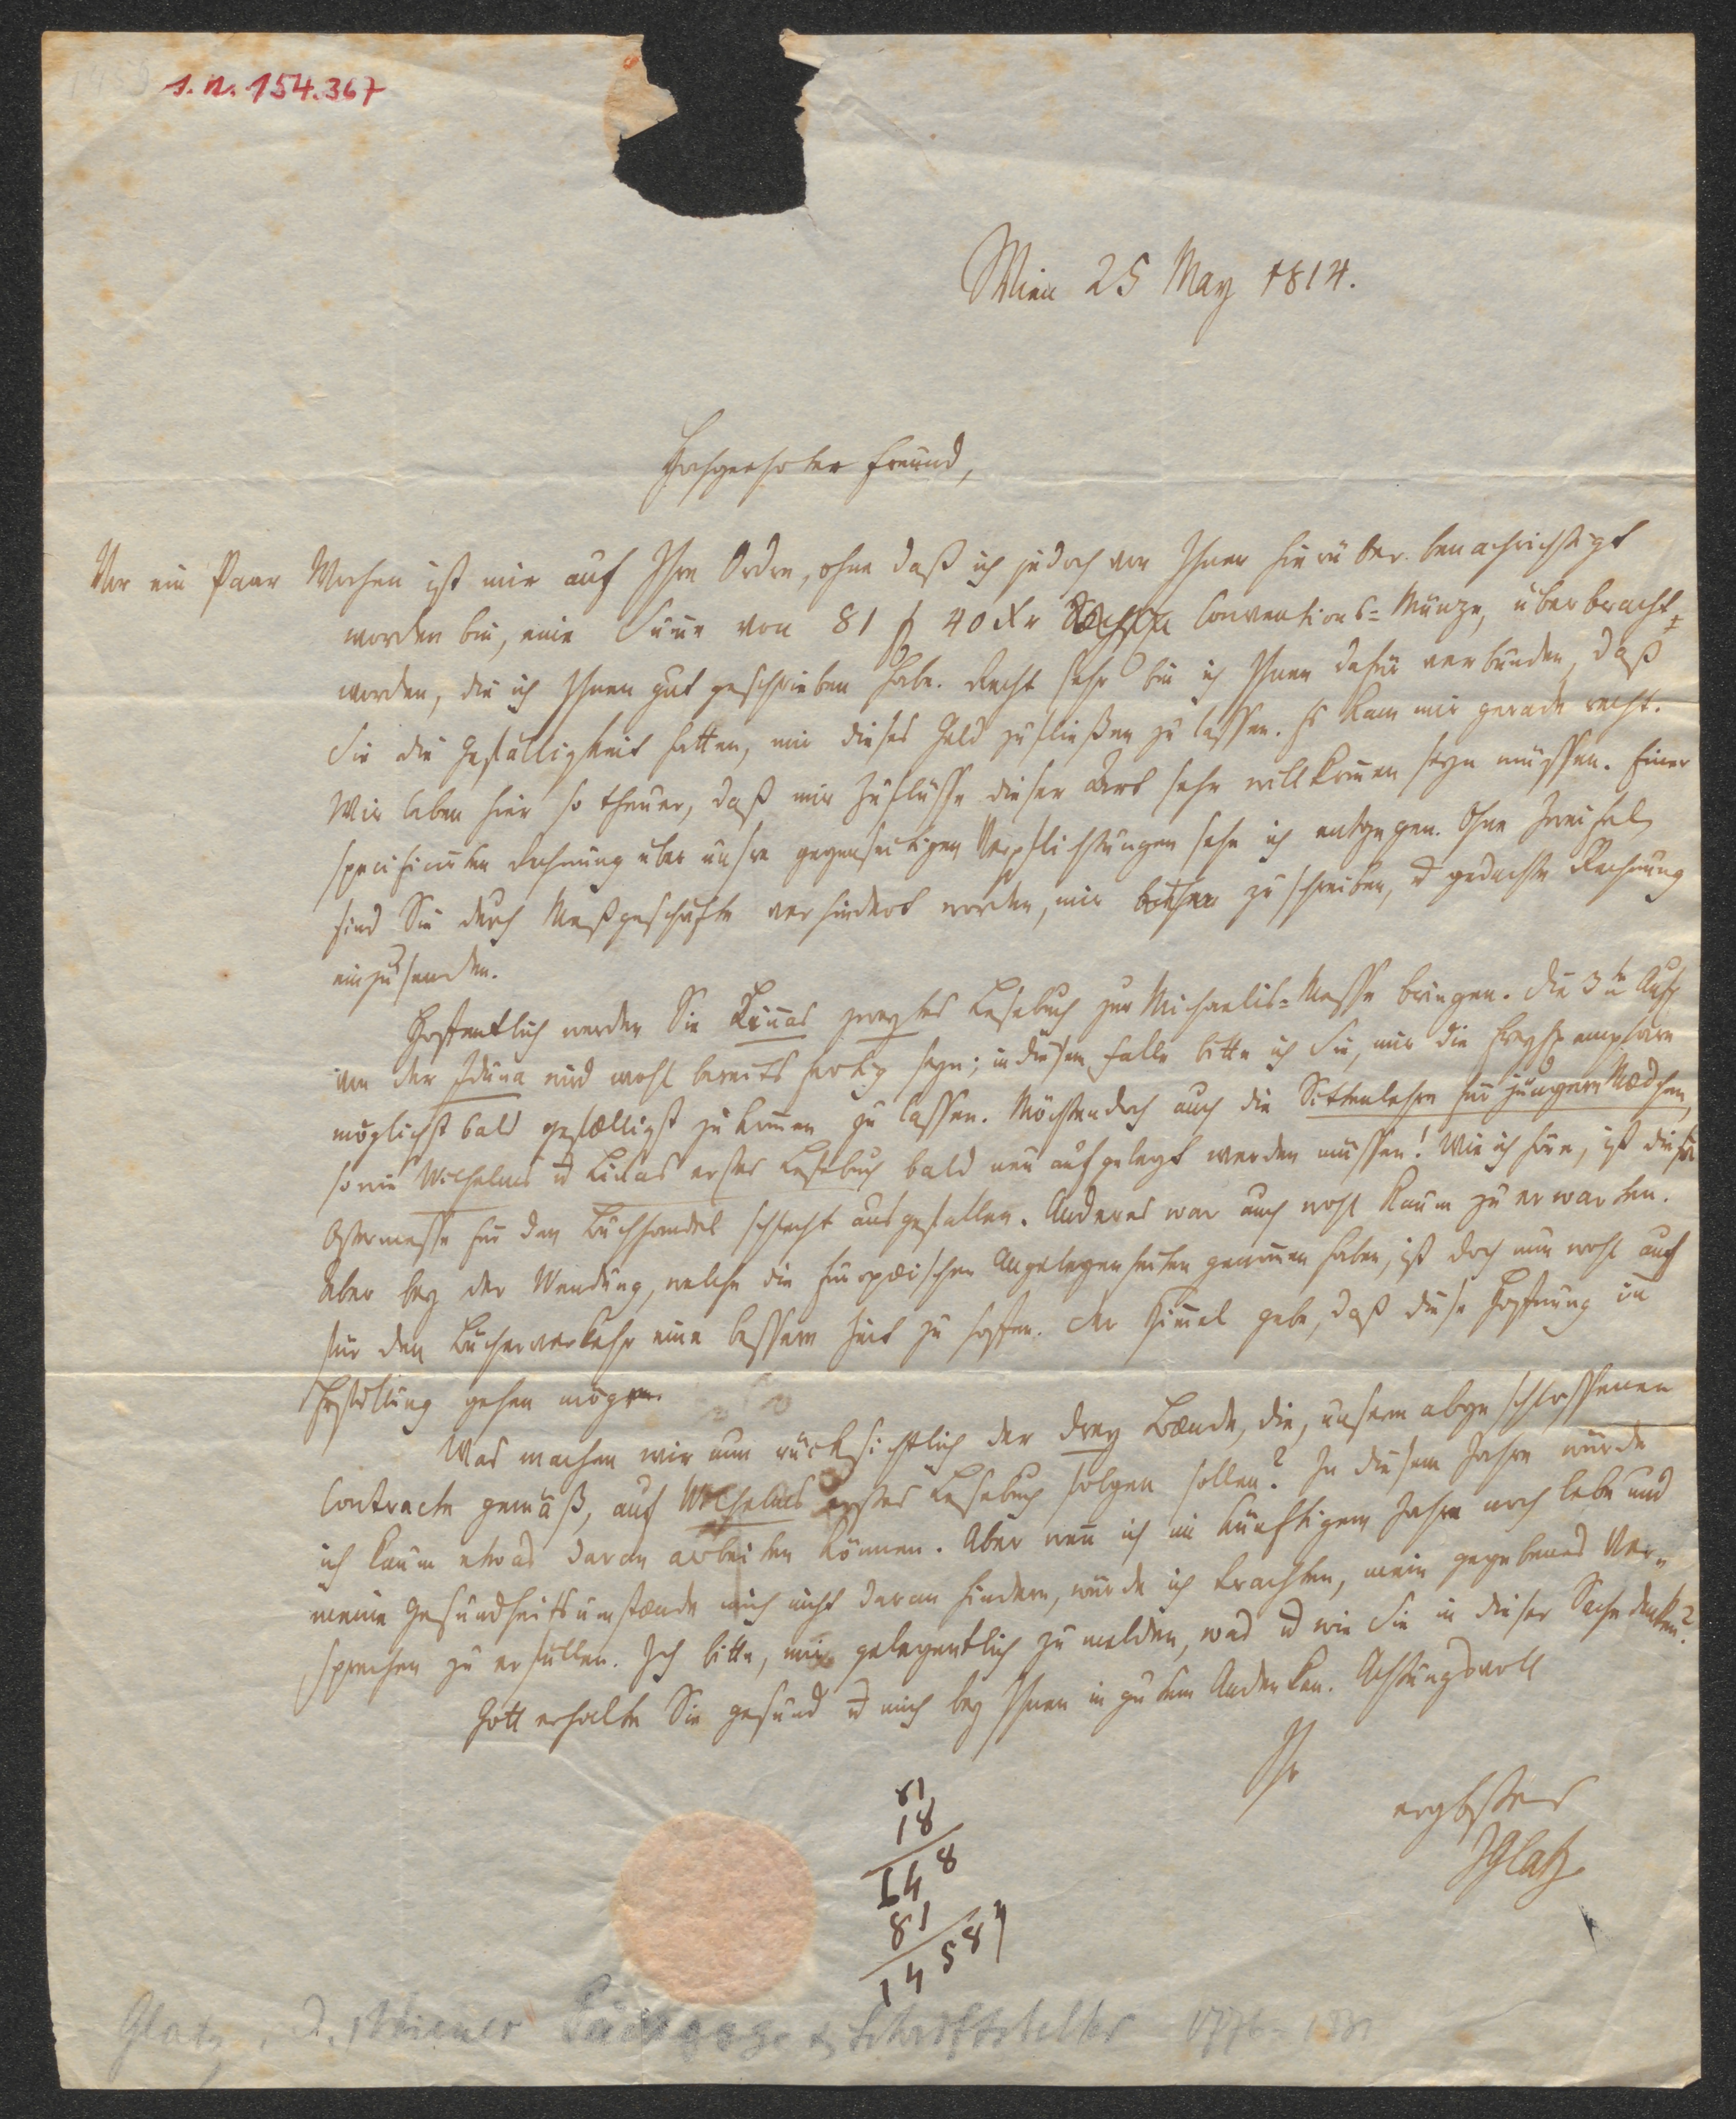 s. n. 154.367
Wien 25 May 1814.
Hochgeehrter Freund,
Vor ein Paar Wochen ist mir auf Ihre Ordre, ohne daß ich jedoch von Ihnen hierüber benachrichtigt
worden bin, eine Sum̅e von 81 f 40 Xr Conventions-Münze, überbracht
worden, die ich Ihnen gut geschrieben habe. Recht sehr bin ich Ihnen dafür verbunden, daß
Sie die Gefälligkeit hatten, mir dieses Geld zufließen zu lassen. Es kam mir gerade recht.
Wir leben hier so theuer, daß mir Zuflüsse dieser Art sehr willkom̅en seyn müssen. Einer
specificirten Rechnung über unsre gegenseitigen Verpflichtungen sehe ich entgegen. Ohne Zweifel
sind Sie durch Meßgeschäfte verhindert worden, mir bisher zu schreiben, u gedachte Rechnung
einzusenden.
Hoffentlich werden Sie Lin̅as zweytes Lesebuch zur Michaelis-Messe bringen. Die 3te Aufl
von der Iduna wird wohl bereits fertig seyn; in diesem Falle bitte ich Sie, mir die Freyexemplare
möglichst bald gefælligst zukom̅en zu lassen. Möchten doch auch die Sittenlehre für jüngere Mædchen,
so wie Wilhelms u Linas erstes Lesebuch bald neu aufgelegt werden müssen! Wie ich höre, ist die
Ostermesse für den Buchhandel schlecht ausgefallen. Anderes war auch wohl kaum zu erwarten.
Aber bey der Wendung, welche die Europæischen Angelegenheiten genom̅en haben, ist doch nun wohl auch
für den Bücherverkehr eine bessere Zeit zu hoffen. Der Him̅el gebe, daß diese Hoffnung in
Erfüllung gehen möge.
Was machen wir nun rücksichtlich der drey Bænde, die, unserm abgeschlossenen
Contracte gemäß, auf Wilhelms erstes Lesebuch folgen sollen? In diesem Jahre würde
ich kaum etwas daran arbeiten können. Aber wen̅ ich im künftigem Jahre noch lebe und
meine Gesundheitsumstænde mich nicht daran hindern, würde ich trachten, mein gegebenes Ver-
sprechen zu erfüllen. Ich bitte, mir gelegentlich zu melden, was u wie Sie in dieser Sache denken?
Gott erhalte Sie gesund u mich bey Ihnen in gutem Andenken. Achtungsvoll
Ihr
ergbster
JGlatz
81
18
648
81
1458
Glatz, J., Wiener Pädagoge & Schriftsteller 1776-1831